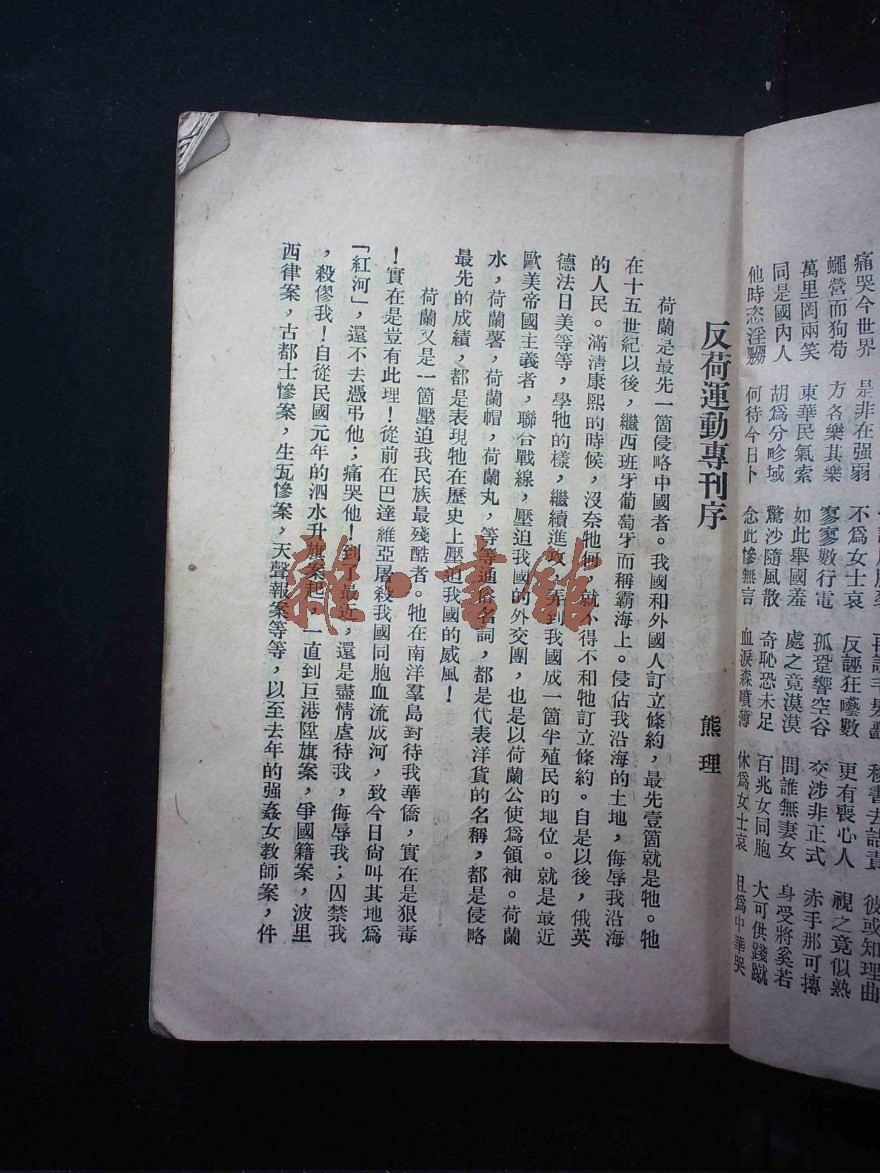 痛哭今世界　是非在强弱
蠅營而狗苟　方各樂其樂　不爲女士哀　反誣狂囈數　更有喪心人　視之竟似熟
萬里罔兩笑　東華民氣索　寥寥數行電　孤跫響空谷　交涉非正式　赤手那可摶
同是國內人　胡爲分畛域　如此舉國羞　處之竟漠漠　問誰無妻女　身受將奚若
他時恣淫嬲　何待今日卜　驚沙隨風散　奇恥恐未足　百兆女同胞　大可供踐蹴
念此慘無言　血淚森噴薄　休爲女士哀　且爲中華哭
反荷運動專刊序
熊理
荷蘭是最先一箇侵略中國者。我國和外國人訂立條約，最先壹箇就是牠。牠
在十五世紀以後，繼西班牙葡萄牙而稱霸海上。侵佔我沿海的土地，侮辱我沿海
的人民。滿清康熙的時候，沒奈牠何，就不得不和牠訂立條約。自是以後，俄英
德法日美等等，學牠的樣，繼續進攻，弄到我國成一箇半殖民的地位。就是最近
歐美帝國主義者，聯合戰線，壓迫我國的外交團，也是以荷蘭公使爲領袖。荷蘭
水，荷蘭薯，荷蘭帽，荷蘭丸，等等通俗名詞，都是代表洋貨的名稱，都是侵略
最先的成績，都是表現牠在歷史上壓迫我國的威風！
荷蘭又是一箇壓迫我民族最殘酷者。牠在南洋羣島對待我華僑，實在是狠毒
！實在是豈有此理！從前在巴達維亞屠殺我國同胞血流成河，致今日尙叫其地爲
「紅河」，還不去憑弔他；痛哭他！到了最近，還是盡情虐待我，侮辱我；囚禁我
，殺僇我！自從民國元年的泗水升旗案起，一直到巨港陞旗案，爭國籍案，波里
西律案，古都士慘案，生瓦慘案，天聲報案等等，以至去年的强姦女教師案，件
雜·書館